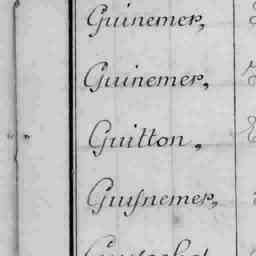 Guinemer,
Guinemer,
Guitton,
Guysnemer,